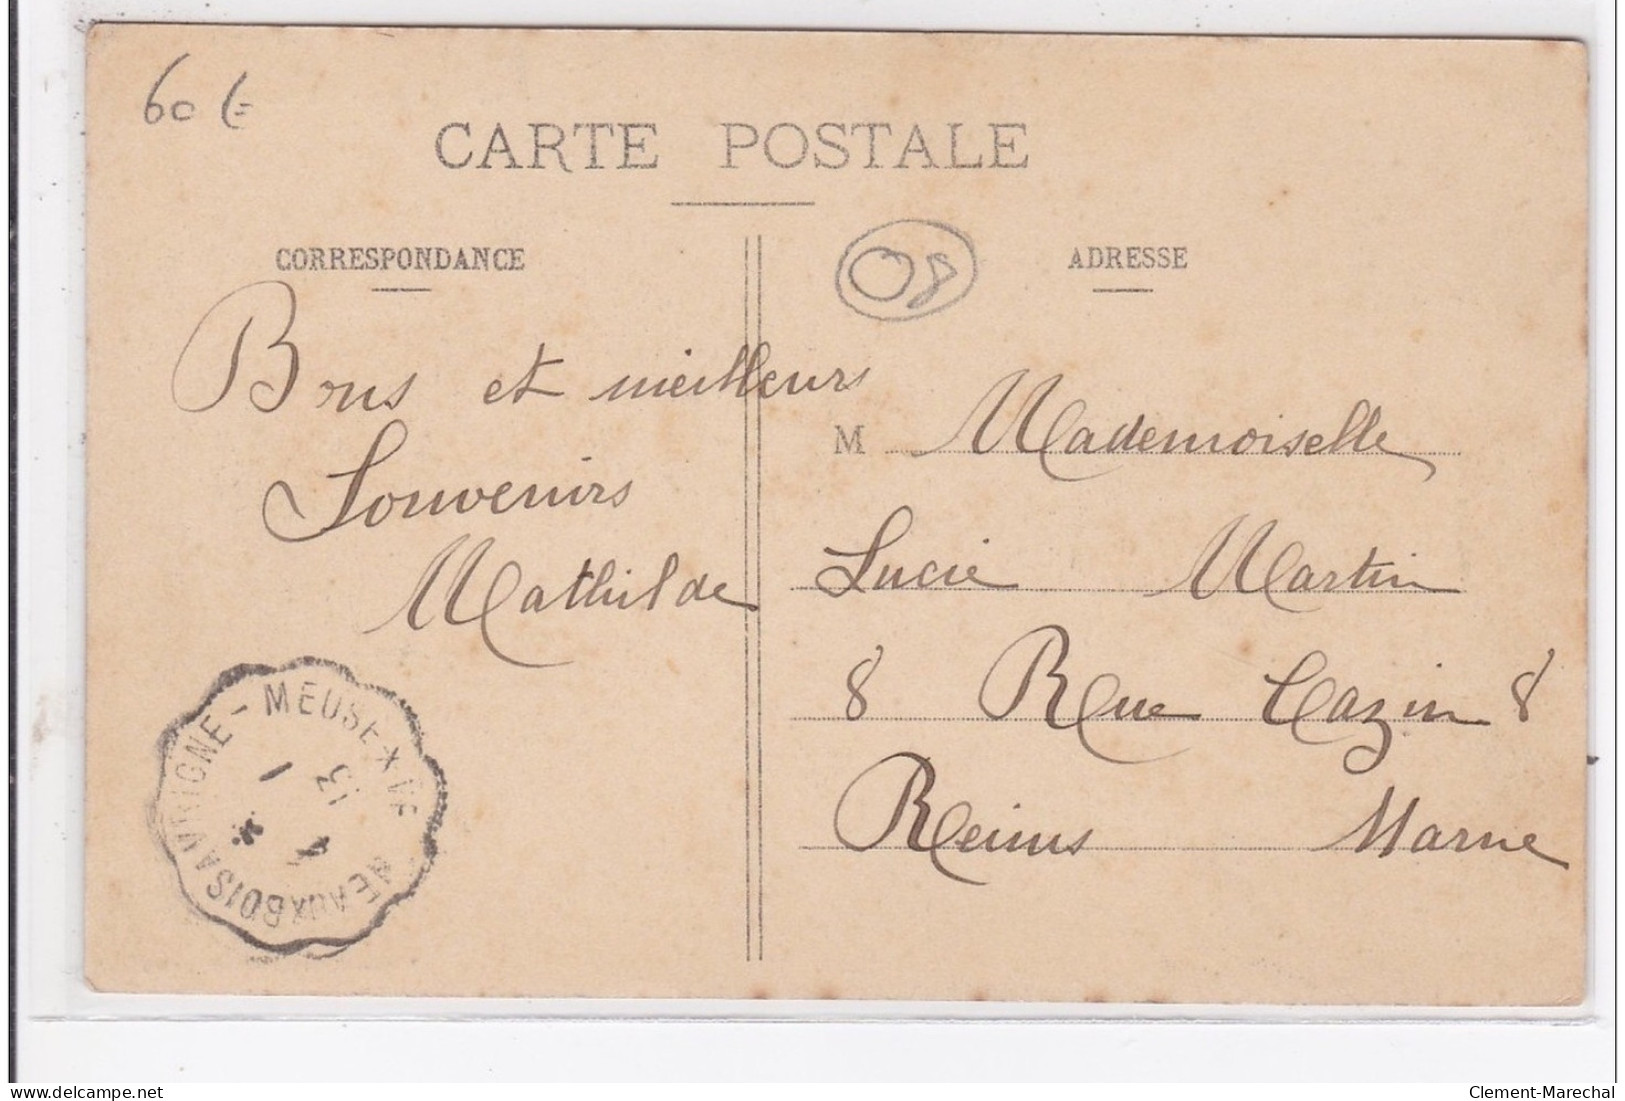 60 €
CARTE POSTALE
CORRESPONDANCE
08
ADRESSE
Bons et meilleurs
Souvenirs
Mathilde
M Mademoiselle
Lucie Martin
8 Rue Cazin 8
Reims Marne
VRIGNE - MEUSE
AUXBOIS
1
13
delcampe.net
Clement-Marechal